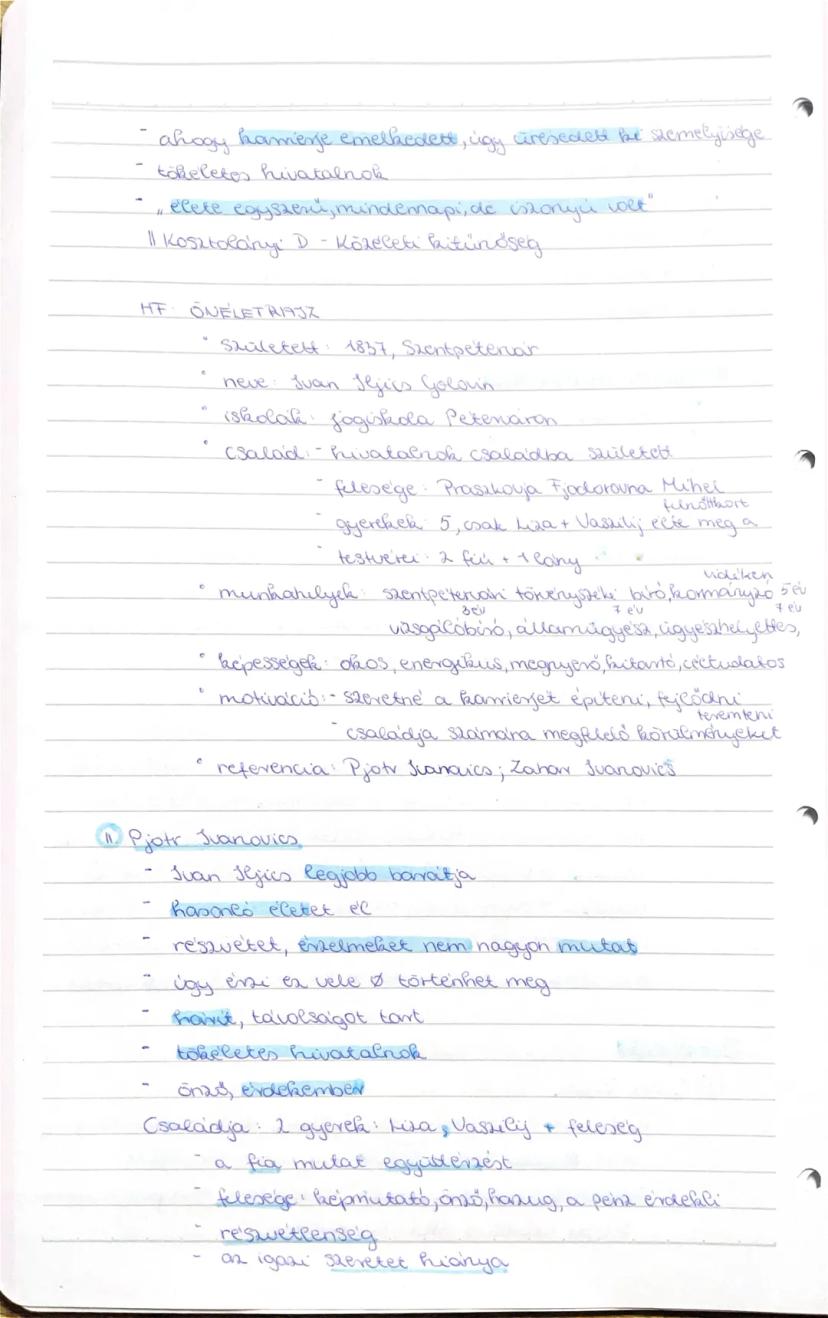 - ahogy karrierje emelkedett, úgy üresedett ki személyisége
- tökéletes hivatalnok
- „élete egyszerű, mindennapi, de iszonyú volt"
|| Kosztolányi D - Közéleti kitűnőség
HF: ÖNÉLETRAJZ
° született: 1837, Szentpétervár
° neve: Ivan Iljics Golovin
° iskolák: jogiskola Péterváron
° család: - hivatalnok családba született
- felesége: Praszkovja Fjodorovna Mihel
felnőttkort
- gyerekek: 5, csak Liza + Vaszilij élte meg a
- testvérei: 2 fiú + 1 lány
vidéken
° munkahelyek: szentpétervári törvényszéki bíró, kormányzó 5 év
3 év 7 év 7 év
vizsgálóbíró, államügyész, ügyészhelyettes,
° képességek: okos, energikus, megnyerő, kitartó, céltudatos
° motiváció: - szeretné a karrierjét építeni, fejlődni
teremteni
- családja számára megfelelő körülményeket
° referencia: Pjotr Ivanovics; Zahar Ivanovics
II Pjotr Ivanovics
- Ivan Iljics legjobb barátja
- hasonló életet él
- részvétet, érzelmeket nem nagyon mutat
- úgy érzi ez vele Ø történhet meg
- hárít, távolságot tart
- tökéletes hivatalnok
- önző, érdekember
Családja: 2 gyerek: Liza, Vaszilij + feleség
- a fia mutat együttérzést
- felesége: képmutató, önző, hazug, a pénz érdekli
- részvétlenség
- az igazi szeretet hiánya